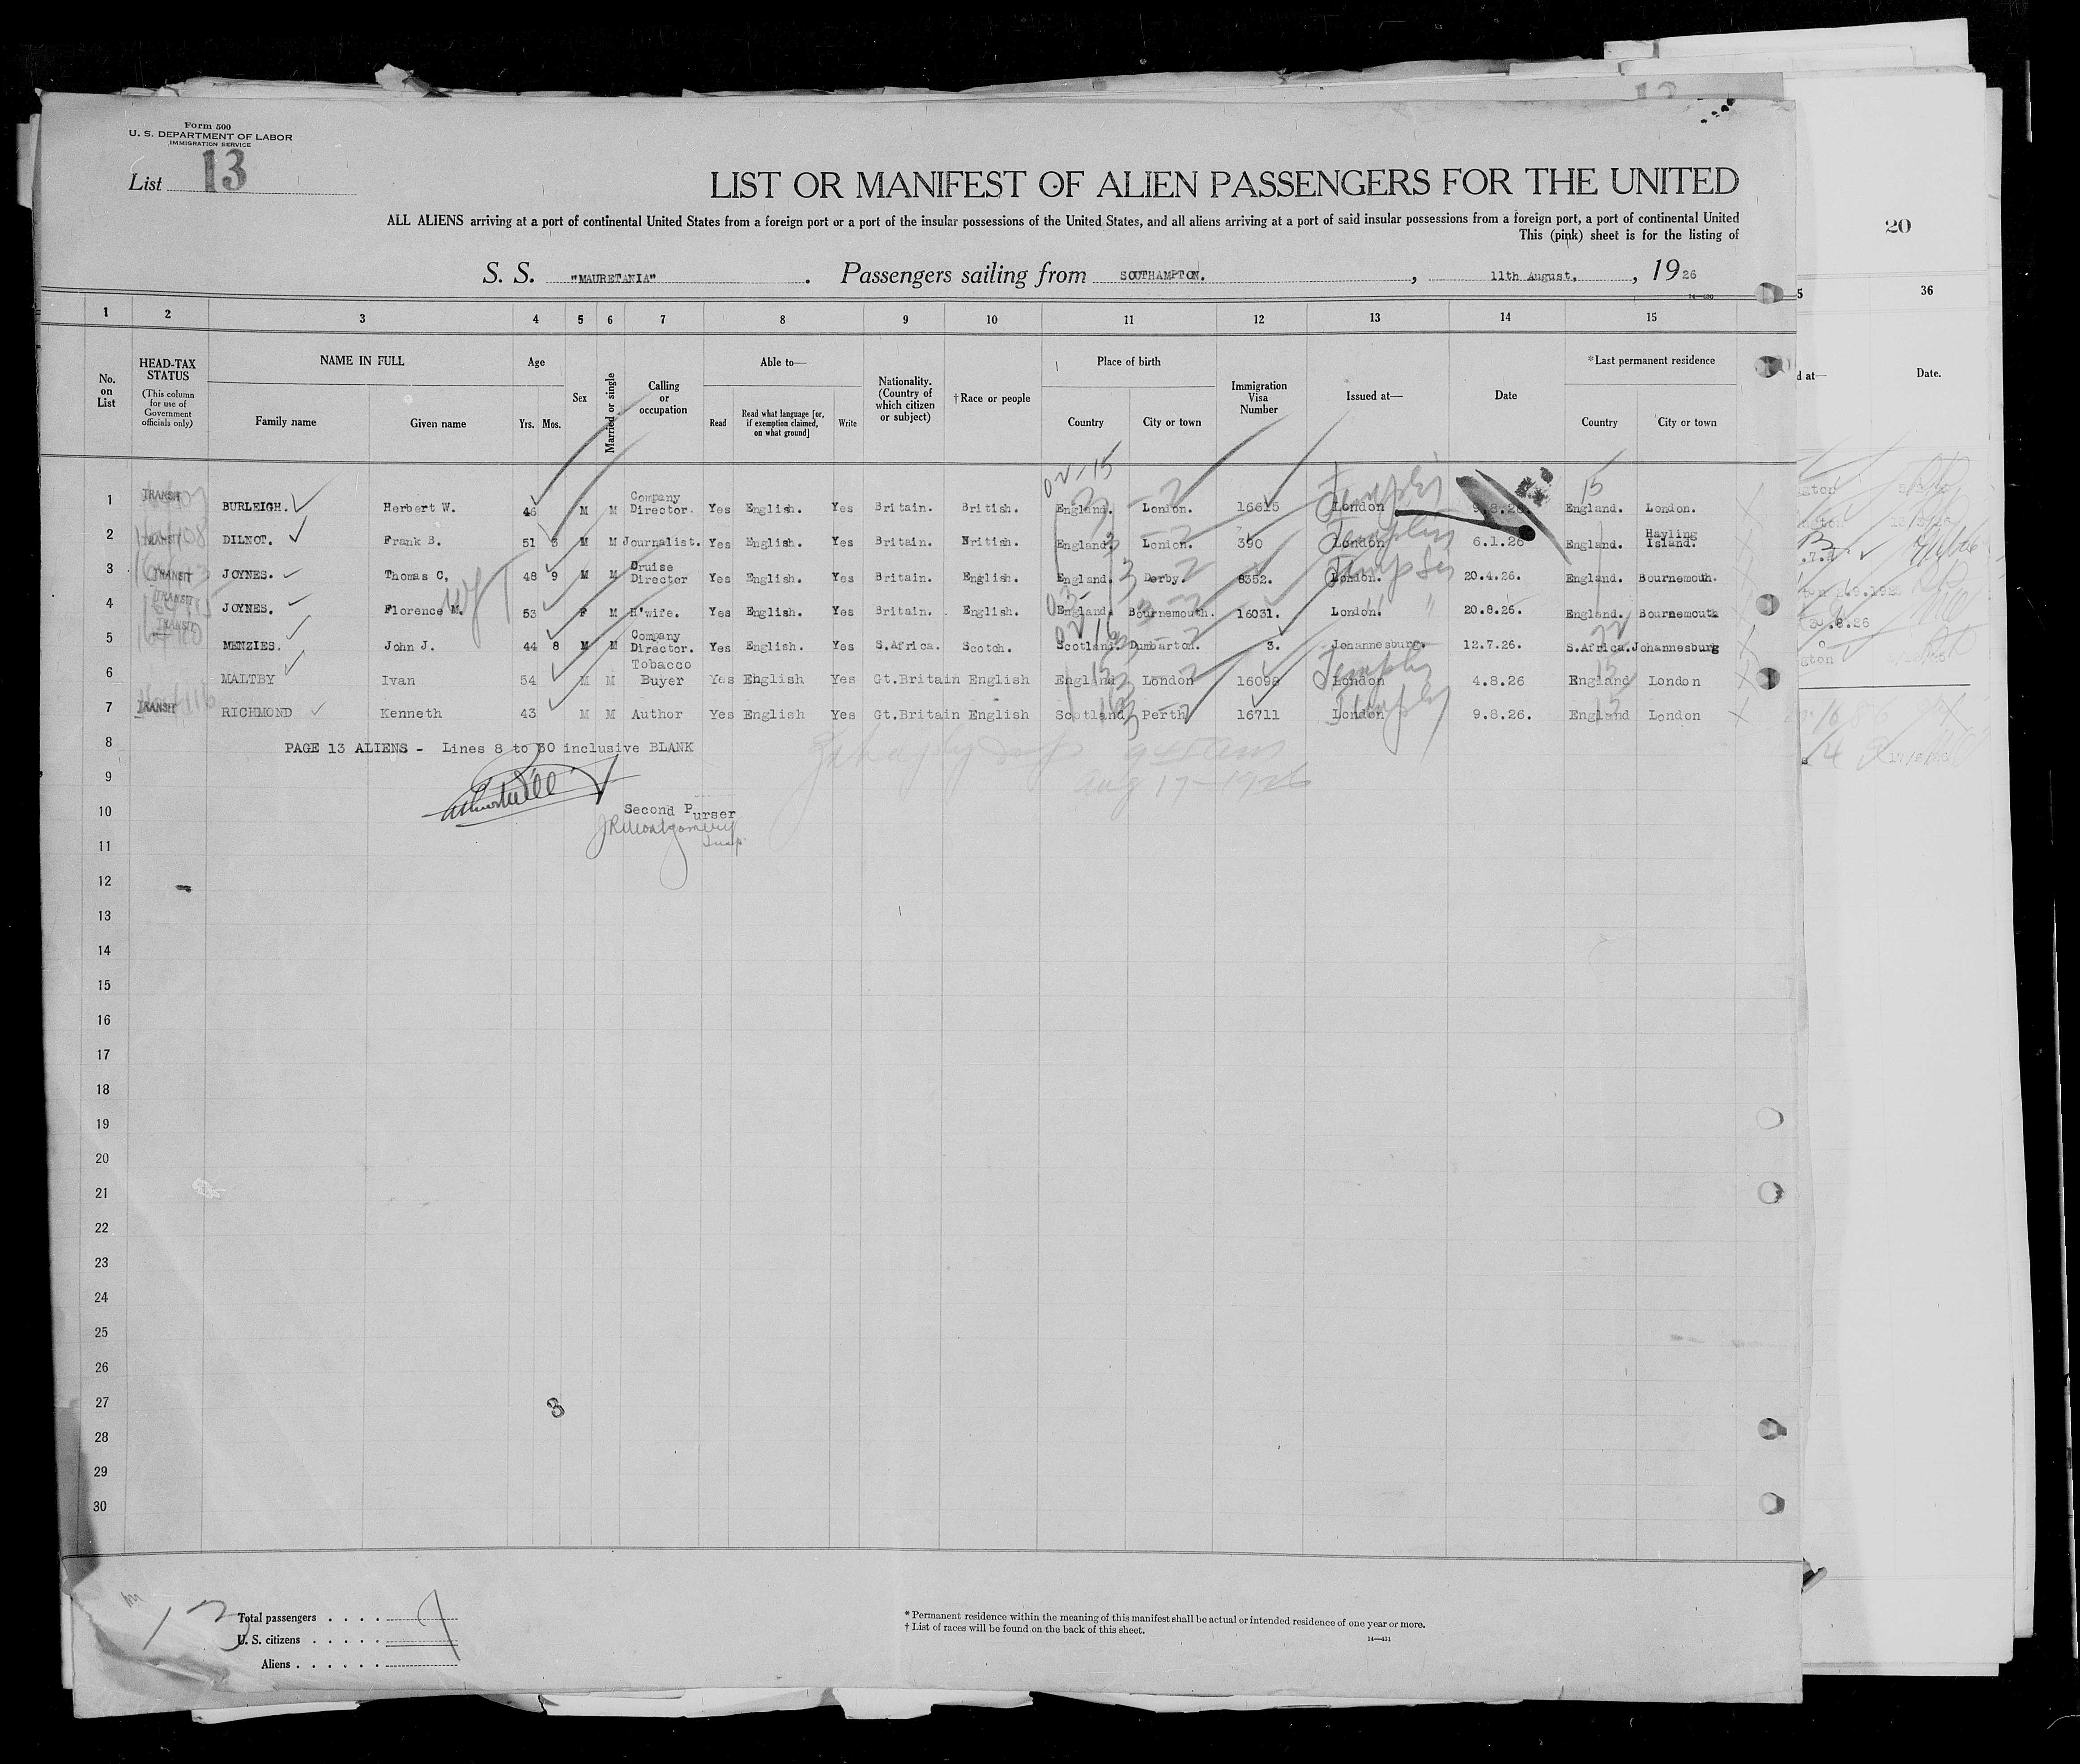 Form 500
U. S. DEPARTMENT OF LABOR
IMMIGRATION SERVICE
List 13
LIST OR MANIFEST OF ALIEN PASSENGERS FOR THE UNITED
ALL ALIENS arriving at a port of continental United States from a foreign port or a port of the insular possessions of the United States, and all aliens arriving at a port of said insular possessions from a foreign port, a port of continental United
This (pink) sheet is for the listing of
20
S. S. "MAURETANIA" . Passengers sailing from SOUTHAMPTON. , 11th August, , 19 26
14—430
1 2 3 4 5 6 7 8 9 10 11 12 13 14 15 5 36
No. on List
HEAD-TAX STATUS
(This column for use of Government officials only)
NAME IN FULL
Family name Given name
Age
Yrs. Mos.
Sex
Married or single
Calling or occupation
Able to—
Read Read what language [or, if exemption claimed, on what ground] Write
Nationality. (Country of which citizen or subject)
†Race or people
Place of birth
Country City or town
Immigration Visa Number
Issued at—
Date
*Last permanent residence
Country City or town
d at— Date.
02-15
1 TRANSIT BURLEIGH. Herbert W. 46 M M Company Director. Yes English. Yes Britain. British. England. London. 16615 London 9.8.26. England. London.
2 TRANSIT DILNOT. Frank B. 51 3 M M Journalist. Yes English. Yes Britain. British. England. London. 390 London 6.1.26 England. Hayling Island.
3 TRANSIT JOYNES. Thomas C. 48 9 M M Cruise Director Yes English. Yes Britain. English. England. Derby. 8352. London. 20.4.26. England. Bournemouth.
4 TRANSIT JOYNES. Florence M. 53 F M H'wife. Yes English. Yes Britain. English. England. Bournemouth. 16031. London. 20.8.26. England. Bournemouth
5 TRANSIT MENZIES. John J. 44 8 M M Company Director. Yes English. Yes S.Africa. Scotch. Scotland. Dumbarton. 3. Johannesburg. 12.7.26. S.Africa. Johannesburg
6 MALTBY Ivan 54 M M Tobacco Buyer Yes English Yes Gt.Britain English England London 16098 London 4.8.26 England London
7 TRANSIT RICHMOND Kenneth 43 M M Author Yes English Yes Gt.Britain English Scotland Perth 16711 London 9.8.26. England London
8 PAGE 13 ALIENS - Lines 8 to 30 inclusive BLANK
9
Aug 17-1926
10 Second Purser
JRMontgomery
Insp
11
12
13
14
15
16
17
18
19
20
21
22
23
24
25
26
27 3
28
29
30
13
Total passengers . . . . 7
U. S. citizens . . . . .
Aliens . . . . . .
* Permanent residence within the meaning of this manifest shall be actual or intended residence of one year or more.
† List of races will be found on the back of this sheet.
14—431